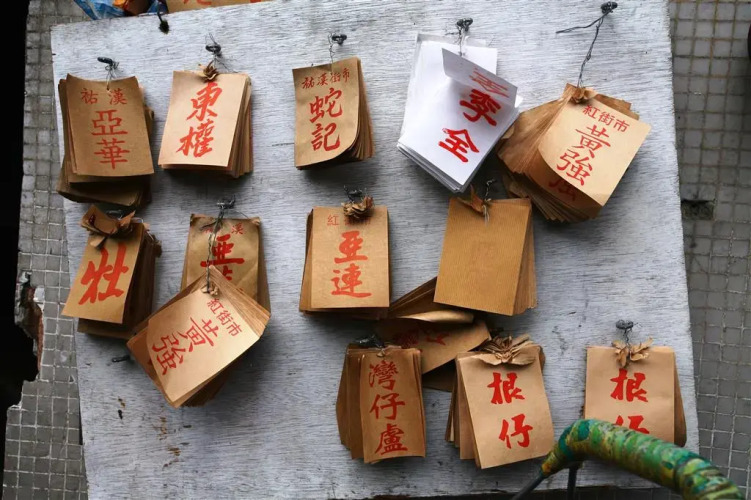 祐漢
亞華
東權
祐漢街市
蛇記
李全
紅街市
黃強
壯
漢
亞
紅
亞連
紅街市
黃強
灣仔
盧
根仔
根仔